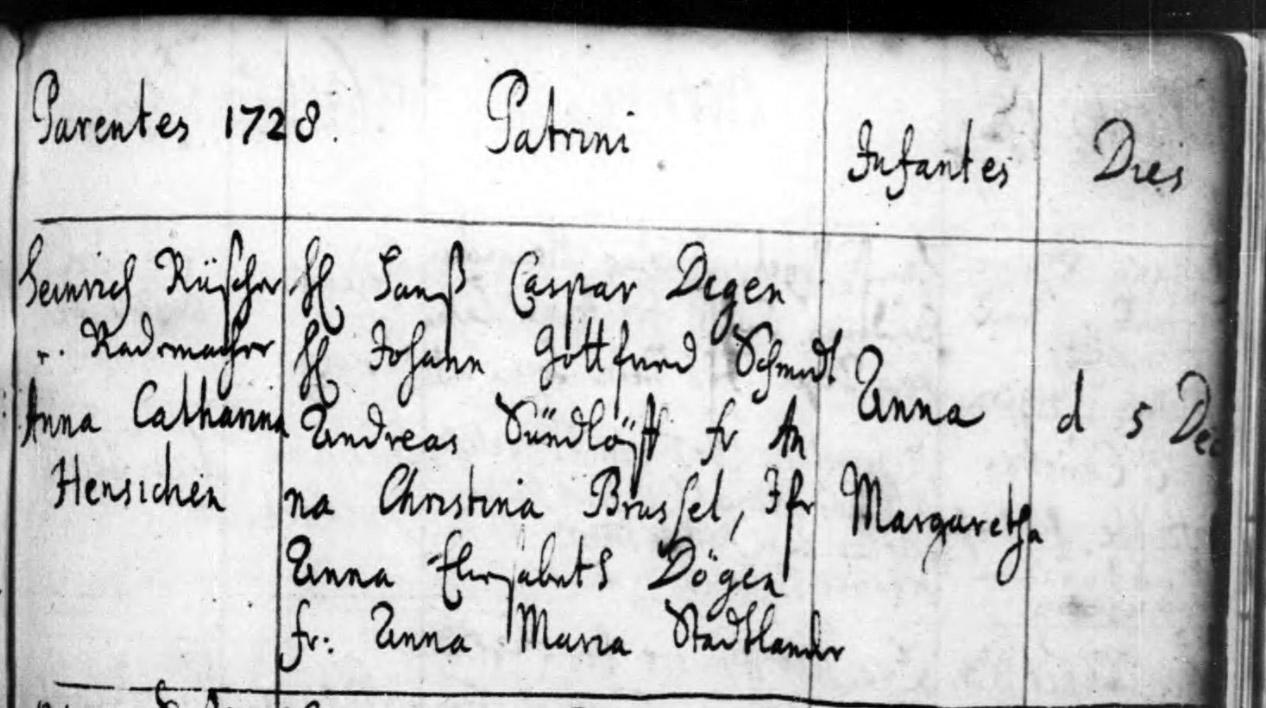 Parentes 1728.
Patrini
Infantes
Dies
Heinrich Rüscher
v. Radmacher
Anna Catharina
Hensichen
H Hanß Caspar Degen
H Johann Gottfried Schmidt
Andreas Sündlöff fr An
na Christina Brussel, Jfr
Anna Elisabeth Dögen
fr: Anna Maria Stadtlander
Anna
Margaretha
d 5 Dec